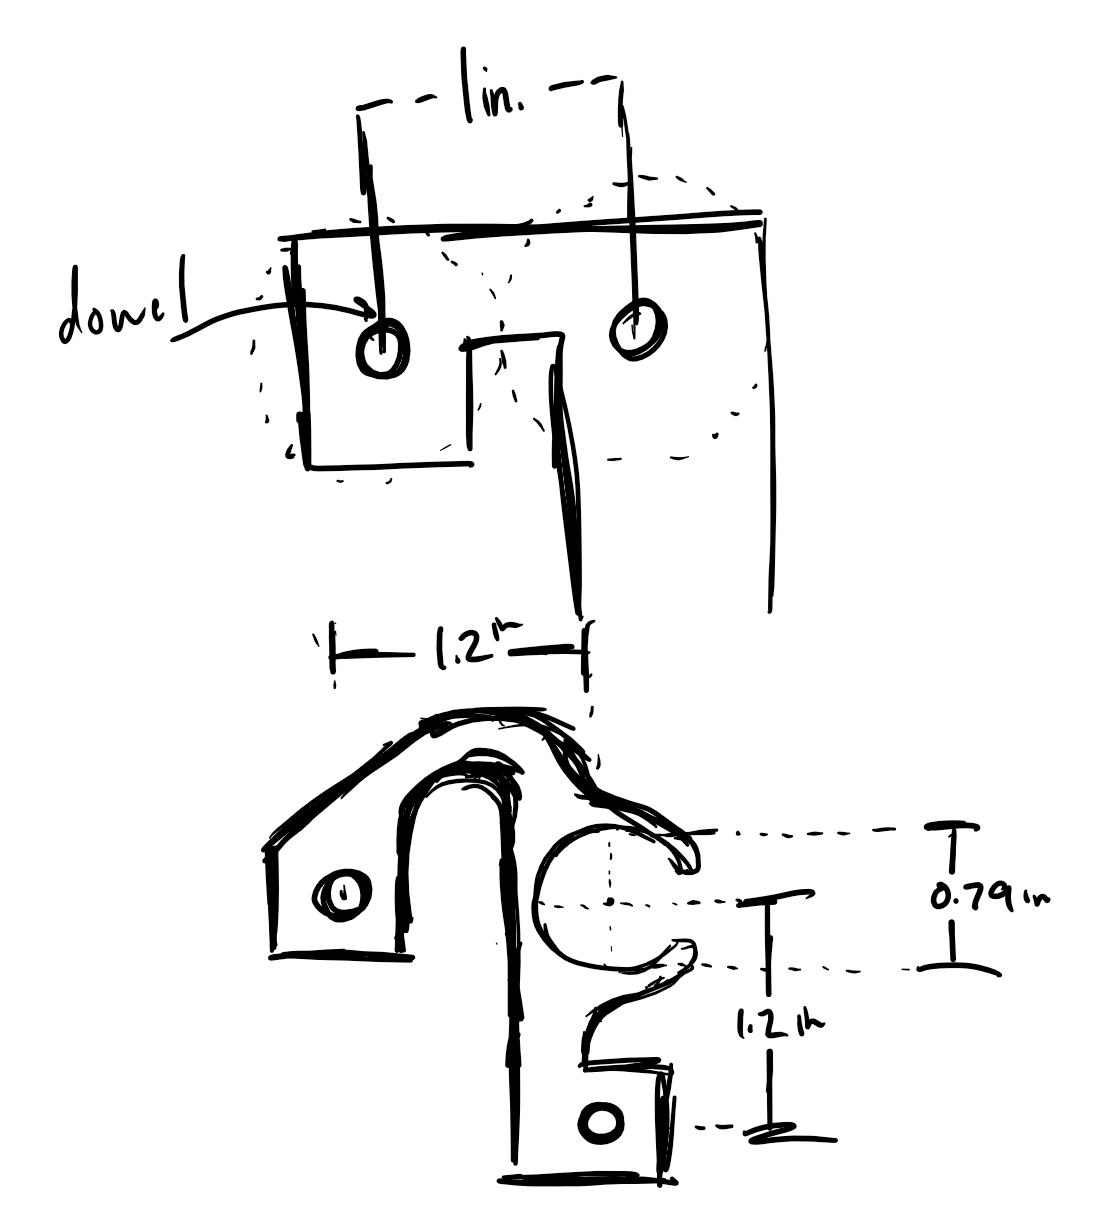 1in.
dowel
1.2in
0.79in
1.2in